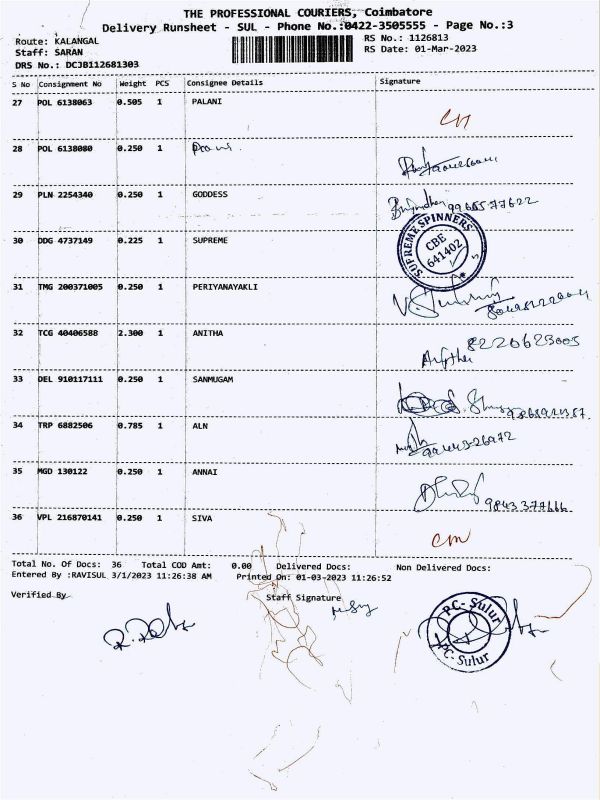 THE PROFESSIONAL COURIERS, Coimbatore
Delivery Runsheet - SUL - Phone No.:0422-3505555 - Page No.:3
Route: KALANGAL
RS No.: 1126813
Staff: SARAN
RS Date: 01-Mar-2023
DRS No.: DCJB112681303
S No Consignment No Weight PCS Consignee Details Signature
27 POL 6138063 0.505 1 PALANI
28 POL 6138080 0.250 1
29 PLN 2254340 0.250 1 GODDESS
SUPREME SPINNERS
CBE
641402
30 DDG 4737149 0.225 1 SUPREME
31 TMG 200371005 0.250 1 PERIYANAYAKLI
32 TCG 40406588 2.300 1 ANITHA 8220623005
33 DEL 910117111 0.250 1 SANMUGAM
34 TRP 6882506 0.785 1 ALN
35 MGD 130122 0.250 1 ANNAI
36 VPL 216870141 0.250 1 SIVA
Total No. Of Docs: 36 Total COD Amt: 0.00 Delivered Docs: Non Delivered Docs:
Entered By :RAVISUL 3/1/2023 11:26:38 AM Printed On: 01-03-2023 11:26:52
Verified By Staff Signature
PC- Sulur
PC- Sulur